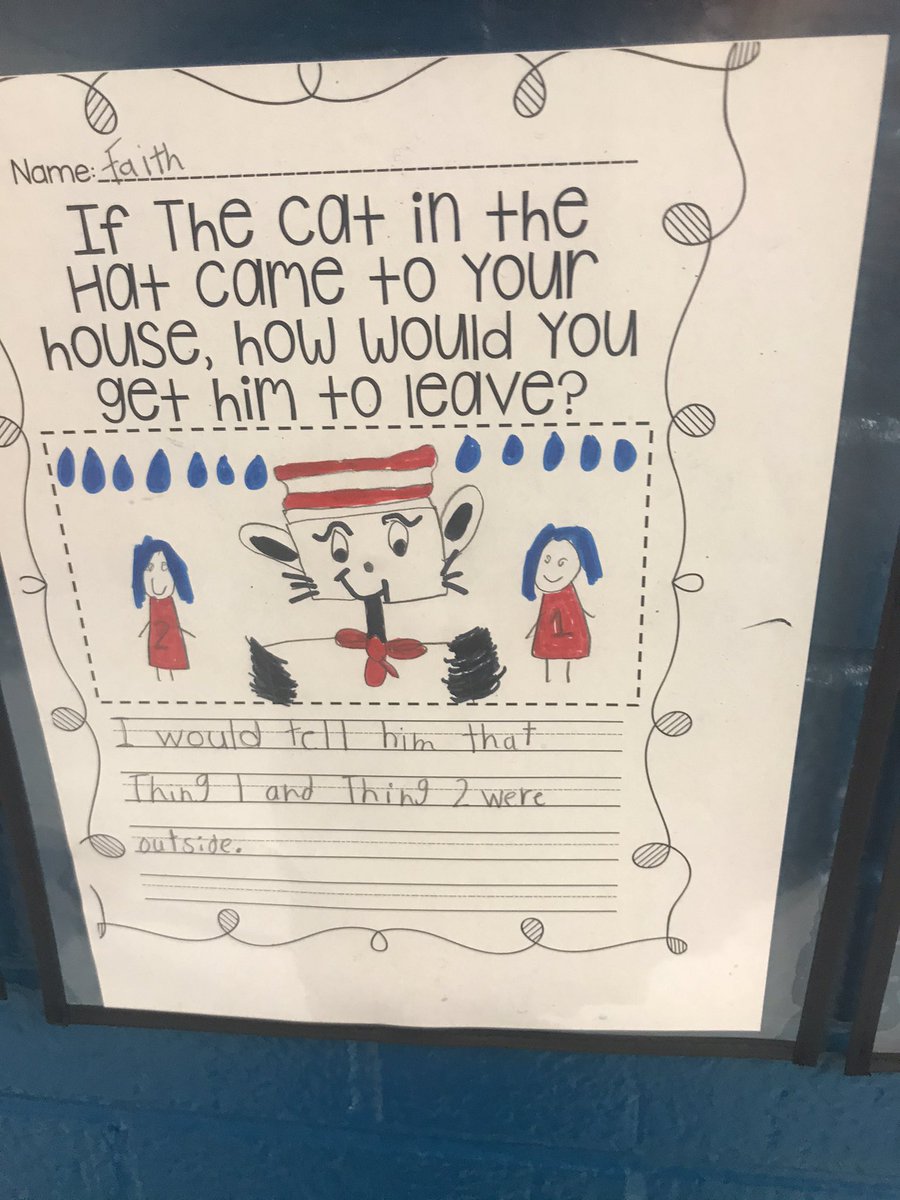 Name: Faith
If The Cat in the
Hat came to your
house, how would you
get him to leave?
2
1
I would tell him that
Thing 1 and Thing 2 were
outside.